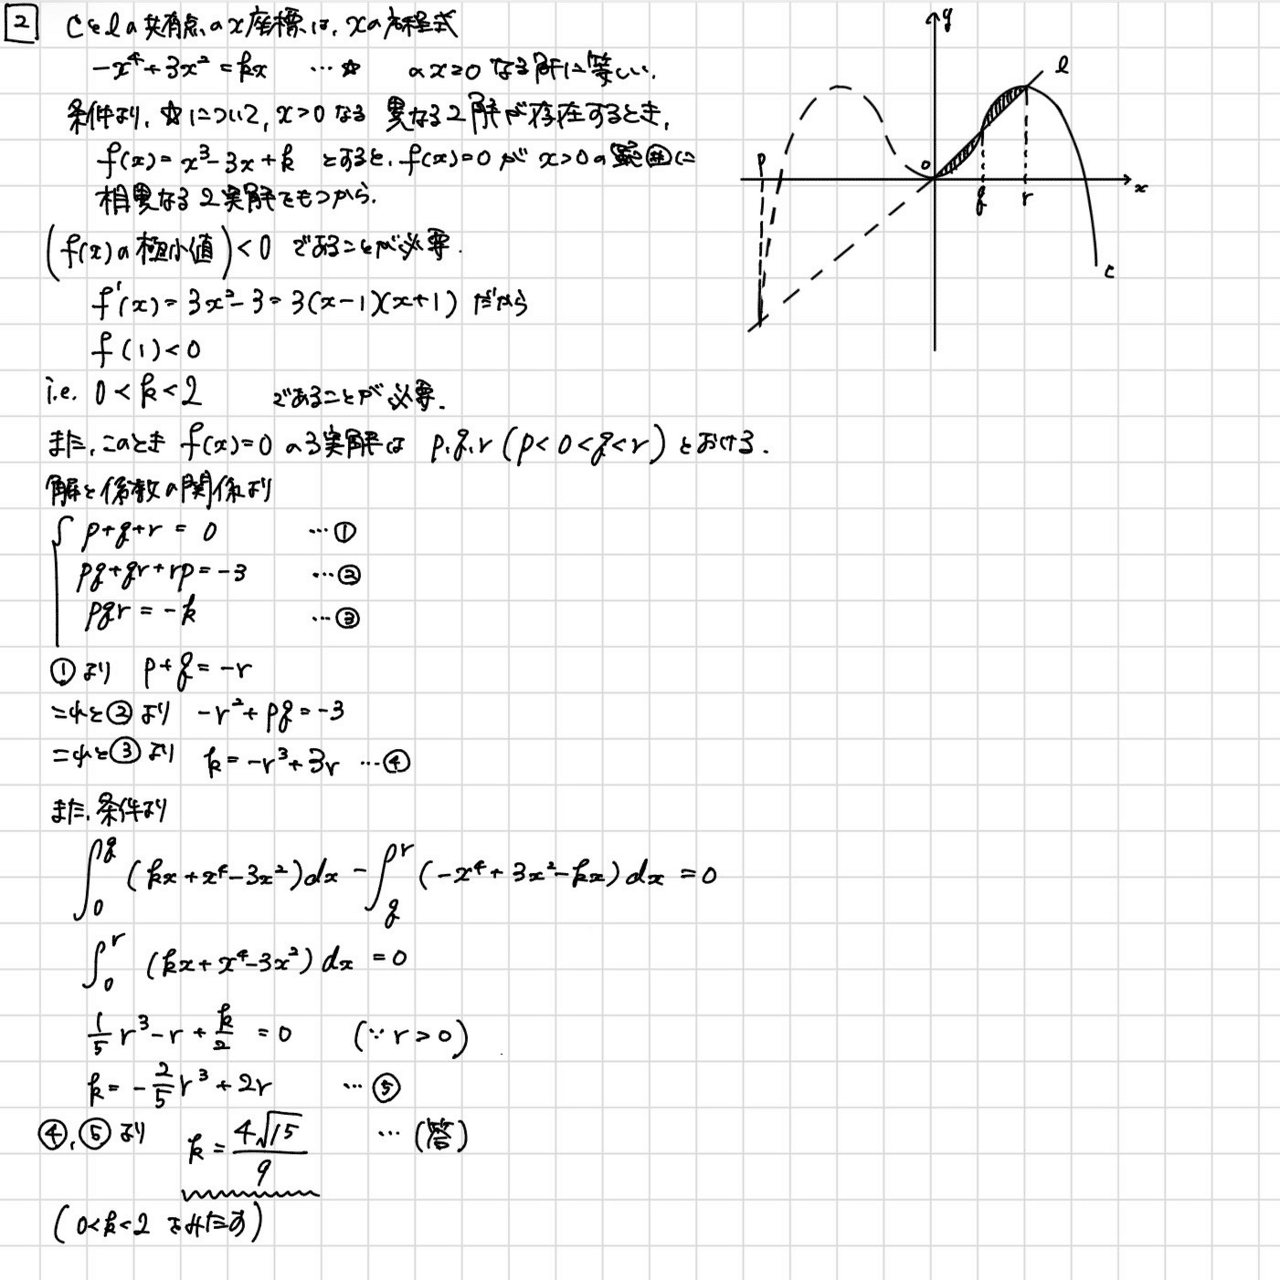 2 Cとlの共有点のx座標は、xの方程式
-x⁴+3x²=kx …☆ のx≧0なる解に等しい.
条件より、☆について、x>0なる異なる2解が存在するとき、
f(x)=x³-3x+kとすると、f(x)=0がx>0の範囲に
相異なる2実解をもつから.
(f(x)の極小値)<0 であることが必要.
f'(x)=3x²-3=3(x-1)(x+1) だから
f(1)<0
i.e. 0<k<2 であることが必要.
また、このとき f(x)=0の3実解は p,q,r (p<0<q<r) とおける.
解と係数の関係より
{ p+q+r=0 …①
pq+qr+rp=-3 …②
pqr=-k …③
①より p+q=-r
これと②より -r²+pq=-3
これと③より k=-r³+3r …④
また、条件より
∫₀^q (kx+x⁴-3x²)dx - ∫_q^r (-x⁴+3x²-kx)dx = 0
∫₀^r (kx+x⁴-3x²)dx = 0
1/5 r³-r+k/2=0 (∵r>0)
k=-2/5 r³+2r …⑤
④,⑤より k=4√15/9 …(答)
(0<k<2をみたす)
y
l
p
o
q
r
x
C